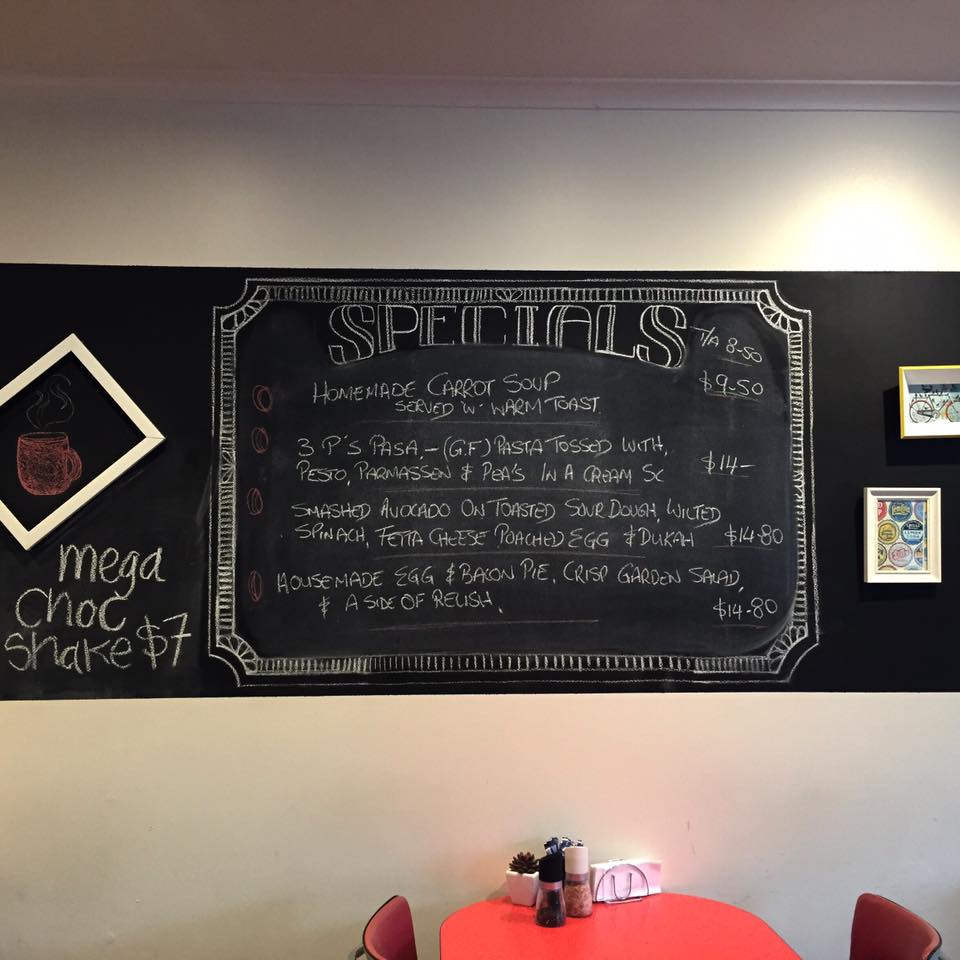 SPECIALS
T/A 8-50
HOMEMADE CARROT SOUP $9-50
SERVED 'W' WARM TOAST.
3 P'S PASA,-(G.F) PASTA TOSSED WITH,
PESTO, PARMASSEN & PEA'S IN A CREAM SC $14-
SMASHED AVOCADO ON TOASTED SOUR DOUGH, WILTED
SPINACH, FETTA CHEESE POACHED EGG & DUKAH $14-80
HOUSEMADE EGG & BACON PIE, CRISP GARDEN SALAD,
& A SIDE OF RELISH, $14-80
mega
CHOC
shake $7